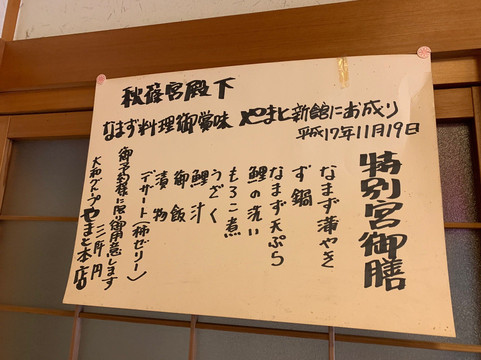 秋篠宮殿下
なまず料理御賞味 やまと新館にお成り
平成17年11月19日
特別宮御膳
なまず蒲やき
ず鍋
なまず天ぷら
鯉の洗い
もろこ煮
うざく
鯉汁
御飯
漬物
デザート(柿ゼリー)
御予約様に限り御用意します
三阡円
大和グループやまと本店